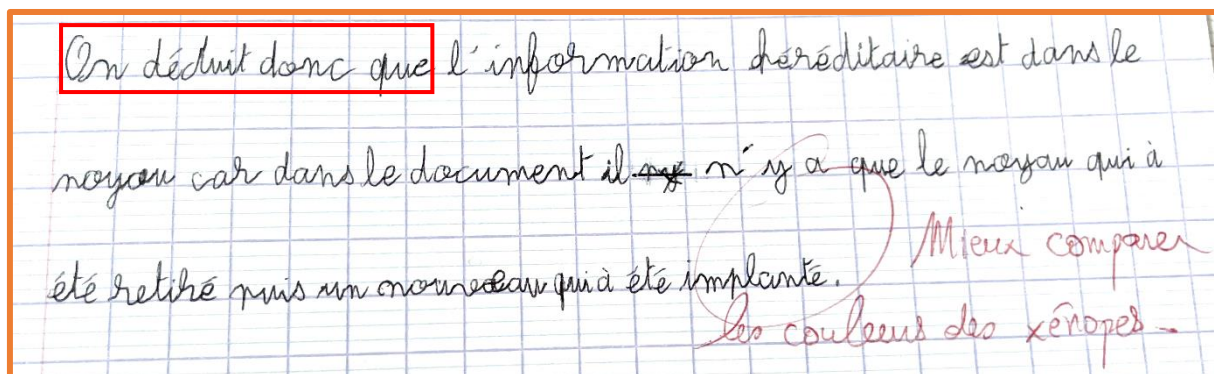 On déduit donc que l'information héréditaire est dans le
noyau car dans le document il n'y a que le noyau qui à
été retiré puis un nouveau qui à été implanté.
Mieux comparer
les couleurs des xénopes -